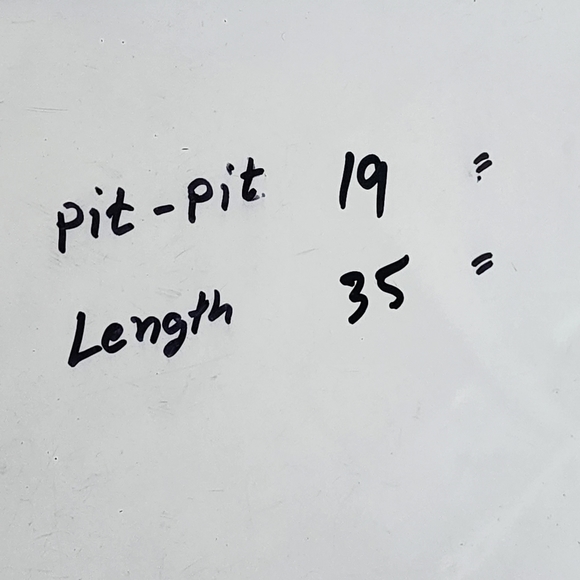 Pit-Pit 19 "
Length 35 "